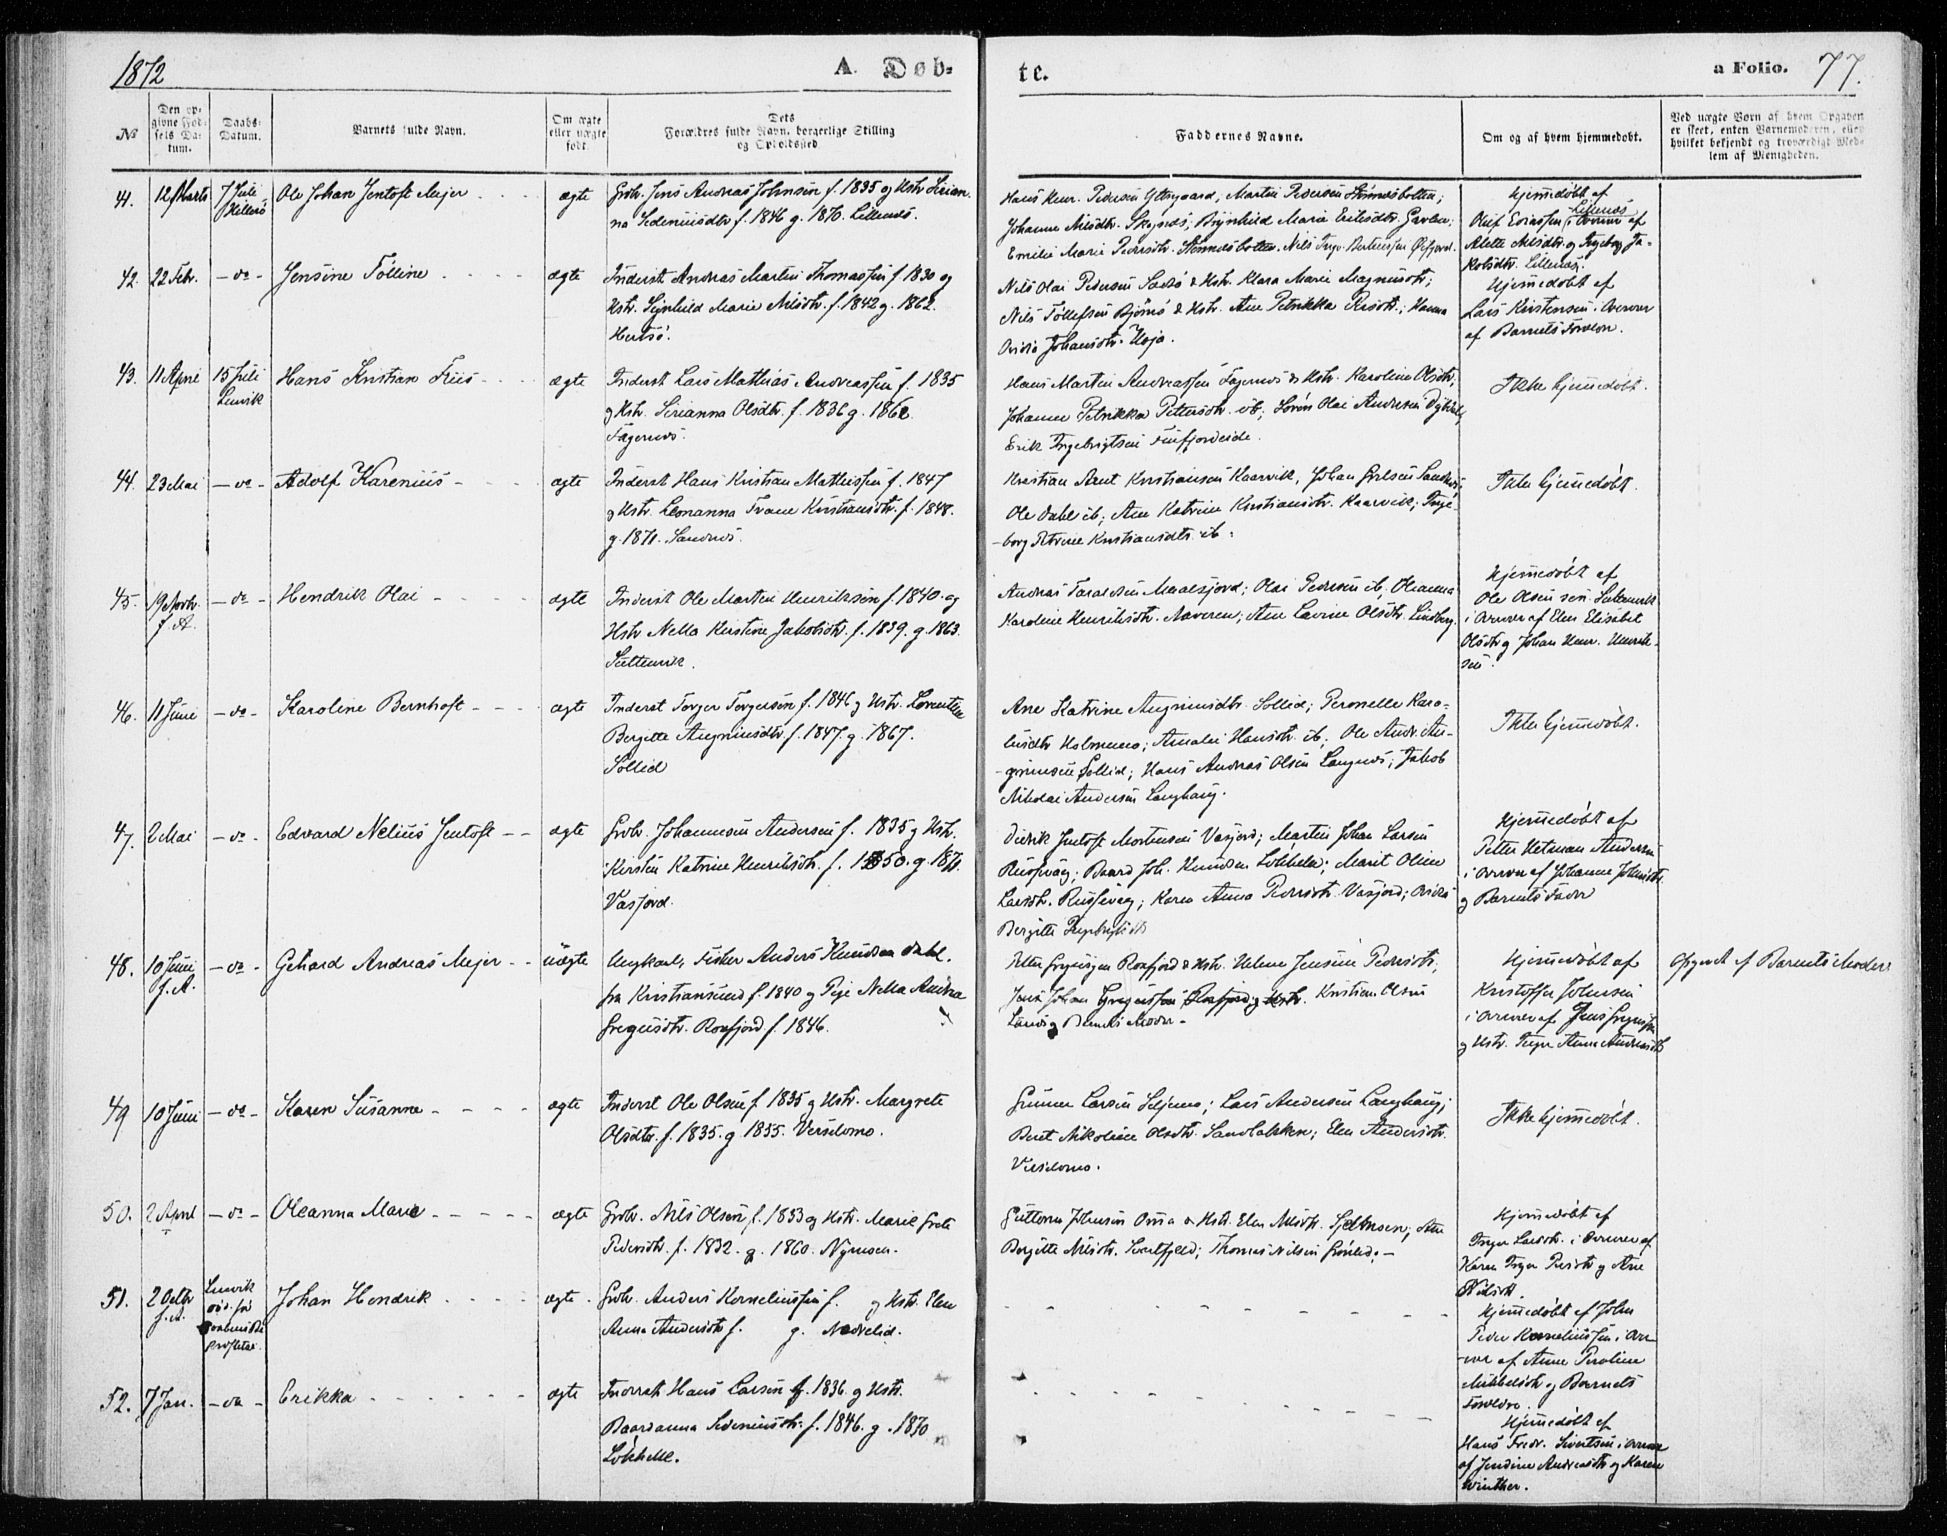 1872
A. Døb-
te.
a Folio. 77.
No
Den op-
givne Fød-
sels Da-
tum.
Daabs-
Datum.
Barnets fulde Navn.
Om ægte
eller uægte
født.
Dets
Forældres fulde Navn, borgerlige Stilling
og Opholdssted
Faddernes Navne.
Om og af hvem hjemmedøbt.
Ved uægte Børn af hvem Opgaven
er skeet, enten Barnemoderen, eller
hvilket bekjendt og troværdigt Med-
lem af Menigheden.
41. 12 Marts 7 Juli Ole Johan Jentoft Mejer ægte Grbr. Jens Andreas Johnsen f. 1835 og Hstr Sirian-
Hillesö
na Sedeniusdtr f. 1846 g. 1870. Lillenæs.
Hans Henr. Pedersen Yttregaard, Martin Pedersen
Johanna Nilsdtr. Skognæs; Brynhild Marie Eriksdtr.
Emilie Marie Pedersdtr.
Hjemmedøbt af
Lillenæs
Alette Nilsdtr. og Ingeborg Ja-
kobsdtr. Lillenæs.
42. 22 Febr. - do - Jensine Tölline ægte Inderst Andreas Martin Thomassen f 1830 og
Hstr. Synhild Marie Nilsdtr. f. 1842 g. 1862.
Nils Olai Pedersen & Hstr. Klara Marie Magnusdtr;
Nils Töllefsen & Hstr. Ane Petrikka; Hanna
Johansdtr.
Hjemmedøbt af
Lars Kristensen i Overvær
af Barnets Forældre.
43. 11 April 15 Juli Hans Kristian Friis ægte Inderst Lars Mathias Andreassen f. 1835
Lenvik
og Hstr. Sirianna Olsdtr. f. 1836 g. 1862
Fagernæs.
Hans Martin Andreassen Fagernæs & Hstr. Karoline Olsdtr,
Johanna Petrikka Pettersdtr. ib; Sören Olai Andersen
Erik Ingebrigtsen Finfjordeide.
Ikke hjemmedøbt.
44. 23 Mai - do - Adolf Karenius ægte Inderst Hans Kristian Mathissen f. 1847
og Hstr. Leonanna Trane Kristiansdtr. f. 1848.
g. 1871. Sandnæs.
Kristian Arnt Kristiansen Kaarvik, Johan
Ole Dahl ib; Ane Katrine Kristiansdtr. Kaarvik; Inge-
borg Petrine Kristiansdtr ib.
Ikke hjemmedøbt.
45. 19 Novbr. - do - Hendrik Olai ægte Inderst Ole Martin Henriksen f. 1840. og
f. A.
Hstr Nella Kirstine Jakobsdtr. f. 1839. g 1863.
Sultenvik.
Andreas Taraldsen Maalsjord; Olai Pedersen ib, Oleanna
Karoline Henriksdtr.; Ane Lavine Olsdtr. Lindberg.
Hjemmedøbt af
Ole Olsen sen. Sultenvik
i Overvær af Elen Elisabet
Olsdtr og Johan Henr. Henrik-
sen.
46. 11 Juni - do - Karoline Bernhoft ægte Inderst Torger Torgersen f. 1846 og Hstr. Lorentze
Bergitte Angrimsdtr f. 1847. g. 1867.
Sollid
Ane Katrine Angrimsdtr. Sollid; Peronelle Karo-
lusdtr Holmenes; Amalie Hansdtr. ib; Ole Andr. An-
grimsen Sollid; Hans Andreas Olsen Langnæs; Jakob
Nikolai Andersen Langhaug.
Ikke hjemmedøbt.
47. 2 Mai - do - Edvard Nelius Jentoft ægte Grbr. Johannesen Andersen f. 1835 g Hstr.
Kirsten Katrine Henriksdtr. f. 1850. g 1871.
Vasjord.
Didrik Jentoft Mortensen Vasjord; Martin Johan Larsen
Russevaag; Baard Joh. Knudsen Lökhelle; Marit Oline
Larsdtr. Russevaag; Karen Anna Pedersdtr. Vasjord;
Bergitte
Hjemmedøbt af
Petter Hetman Andersen
i Overvær af Johanne Johnsdtr.
og Barnets Fader
48. 10 Juni - do - Gehard Andreas Mejer uægte Ungkarl, Fisker Anders Knudsen Dahl.
f. A.
fra Kristiansund f. 1840 og Pige Nella Andrea
Gregusdtr. Rossfjord f. 1846.
Petter Gregussen Rossfjord & Hstr. Helene Jensine Pedersdtr;
Jens Johan Gregussen Rossfjord og Hstr. Kristian Olsen
og Barnets Moder -
Hjemmedøbt af
Kristoffer Johnsen
i Overvær af Jens Gregussen
og Hstr. Inger Anna Andreasdtr
Opgivet af Barnets Moder
49 10 Juni - do - Karen Susanne ægte Inderst Ole Olsen f 1835 g Hstr. Margrete
Olsdtr. f. 1835. g 1855. Versdomo.
Gunner Larsen Seljenes; Lars Andersen Langhaug;
Beret Nikoline Olsdtr. Sandbakken; Elen Andersdtr.
Versdomo.
Ikke hjemmedøbt.
50. 2 April - do - Oleanna Marie ægte Grbr. Nils Olsen f. 1833 og Hstr. Marie Grete
Pedersdtr. f. 1832. g. 1860. Nymoen.
Guttorm Johnsen Oma & Hstr. Elen Nilsdtr.; Ane
Bergitte Nilsdtr. Svartfjeld; Thomas Nilsen Grönlid. -
Hjemmedøbt af
Inger Larsdtr. i Overvær af
Karen Inger Persdtr og Ane
Nilsdtr.
51. 2 Octbr Lenvik Johan Hendrik ægte Grbr. Anders Korneliussen f. og Hstr. Elen
f. A.
Anna Andersdtr f. g. Nedrelid.
Hjemmedøbt af John
Peder Korneliussen i Over-
vær af Anne Peroline
Mikkelsdtr og Barnets
Forældre.
52. 7 Jan. - do - Erikka ægte Inderst Hans Larsen f. 1836 og Hstr.
Baardanna Sedeniusdtr. f. 1846. g. 1870
Lökhelle.
Hjemmedøbt af
Hans Fredr. Sivertsen i Overvær
af Jendine Andreasdtr og Karen
Winther.